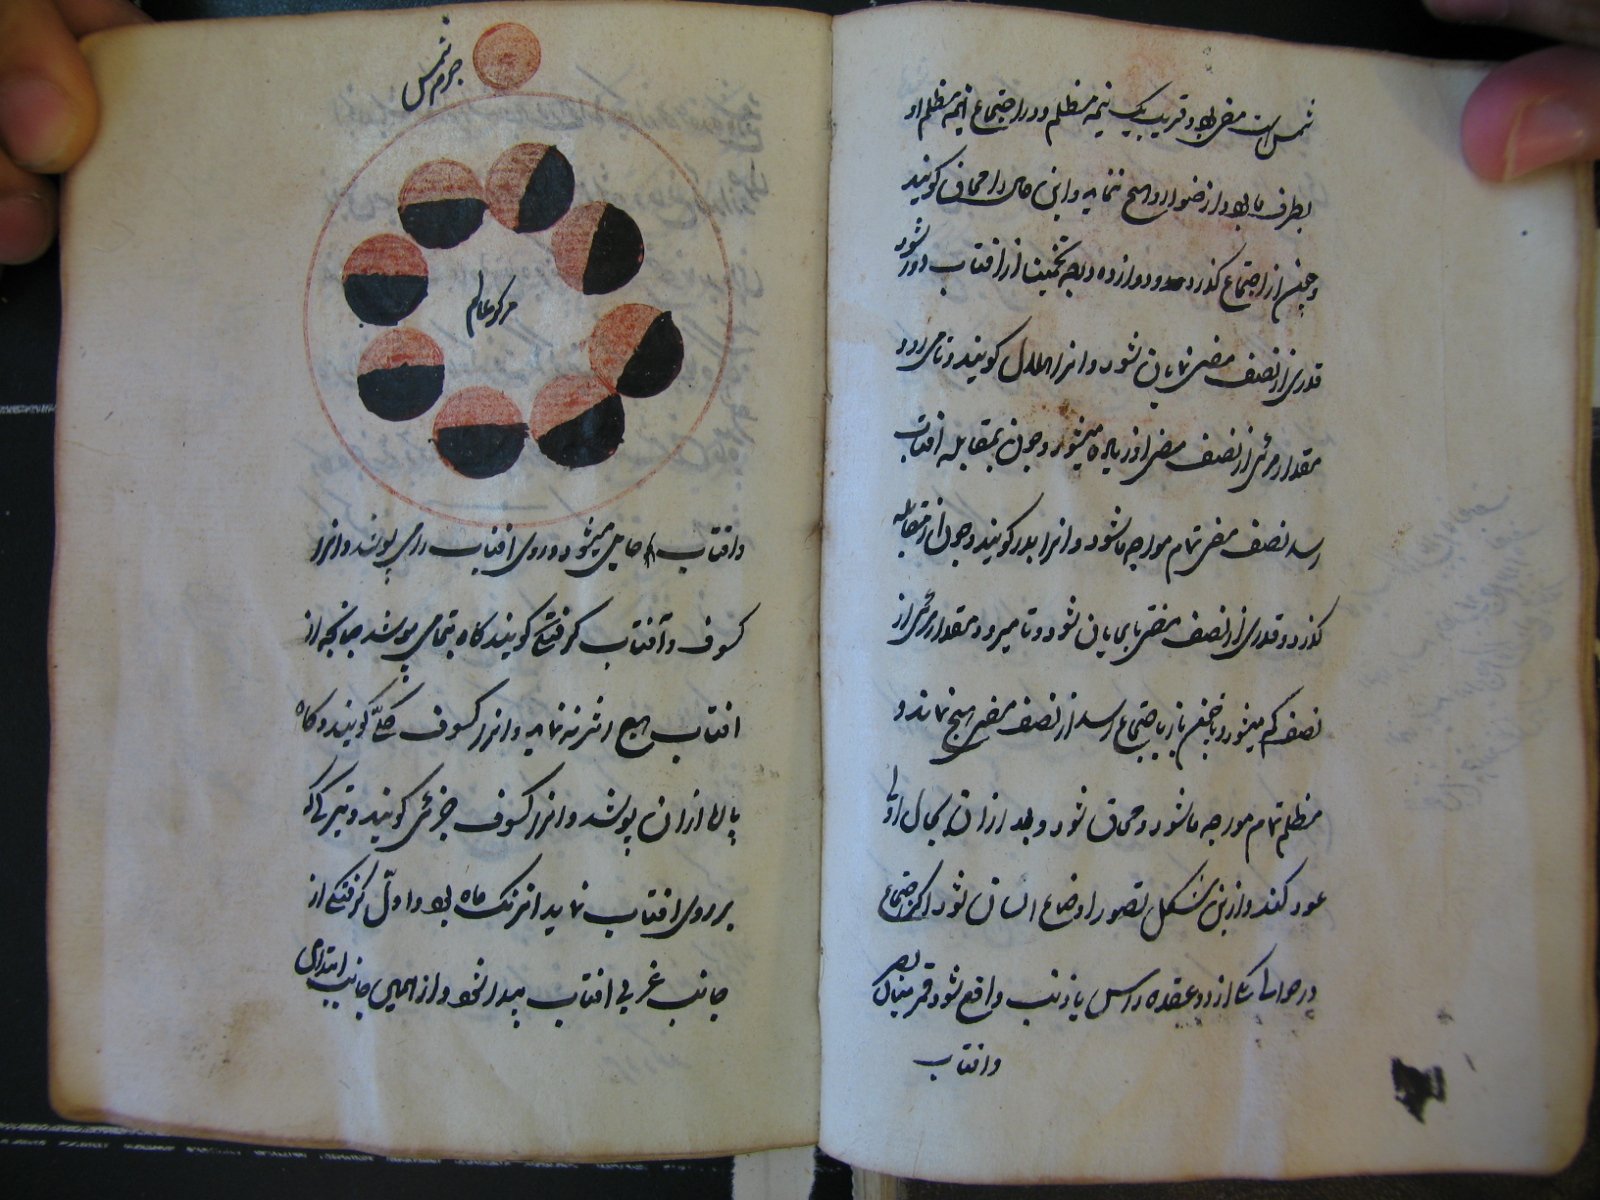 شمس است مضی بود و قریب بیک نیمه مظلم و در اجتماع نیمه مظلم او
بطرف ما بود و از ضوء او هیچ ننماید و این حال را محاق گویند
و چون از اجتماع گذرد و دوازده درجه تخمینا از آفتاب دور شود
قدری از نصف مضی نمایان شود و انرا هلال گویند و تا می رود
مقدار مرئی از نصف مضی او زیاده میشود و چون بمقابله افتاب
رسد نصف مضی تمام مواجه ما شود و انرا بدر گویند و چون از مقابله
گذرد و قدری از نصف مضی نمایان شود و تا میرود مقدار مرئی از
نصف کم میشود و تا چون باز باجتماع رسد از نصف مضی هیچ نماند و
مظلم تمام مواجه ما شود و محاق شود و بعد از ان بحال اولی
عود کند و ازین شکل تصور اوضاع اسان شود اگر اجتماع
در حوالی یکی از دو عقده راس یا ذنب واقع شود قمر میان بصر
و افتاب
جرم شمس
مرکز عالم
و افتاب حایل میشود و روی افتاب را می پوشد و انرا
کسوف و آفتاب گرفتگی گویند گاه بتمامی پوشد چنانچه از
افتاب هیچ اثر ننماید و انرا کسوف کلّی گویند و گاه
پاره از ان پوشد و انرا کسوف جزئی گویند و تیرگی که
بر روی افتاب نماید ان رنگ ماه بود و اوّل گرفتگی از
جانب غربی افتاب پیدا شود و از همین جانب ابتدای